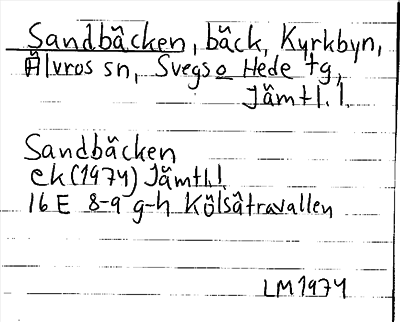 Sandbäcken, bäck, Kyrkbyn,
Älvros sn, Svegs o Hede tg,
Jämtl. l.
Sandbäcken
ek (1974) Jämtl. l
16 E 8-9 g-h Kölsåtravallen
LM 1974